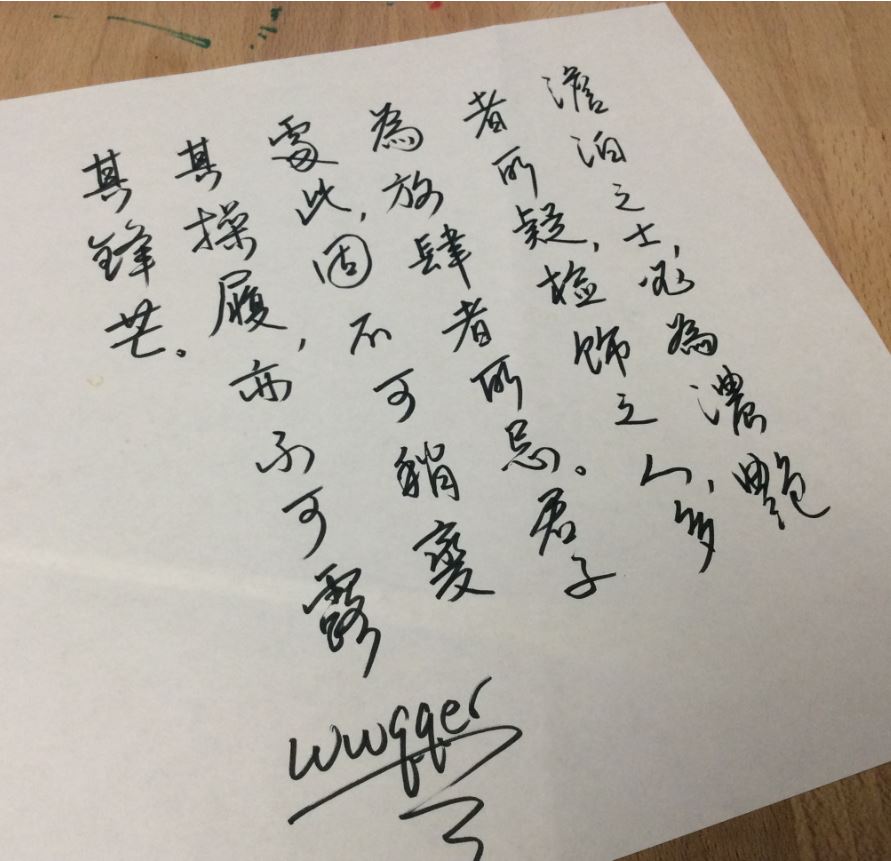 澹泊之士，必為濃艷
者所疑，檢飾之人，多
為放肆者所忌。君子
處此，固不可稍變
其操履，亦不可露
其鋒芒。
wwqqer